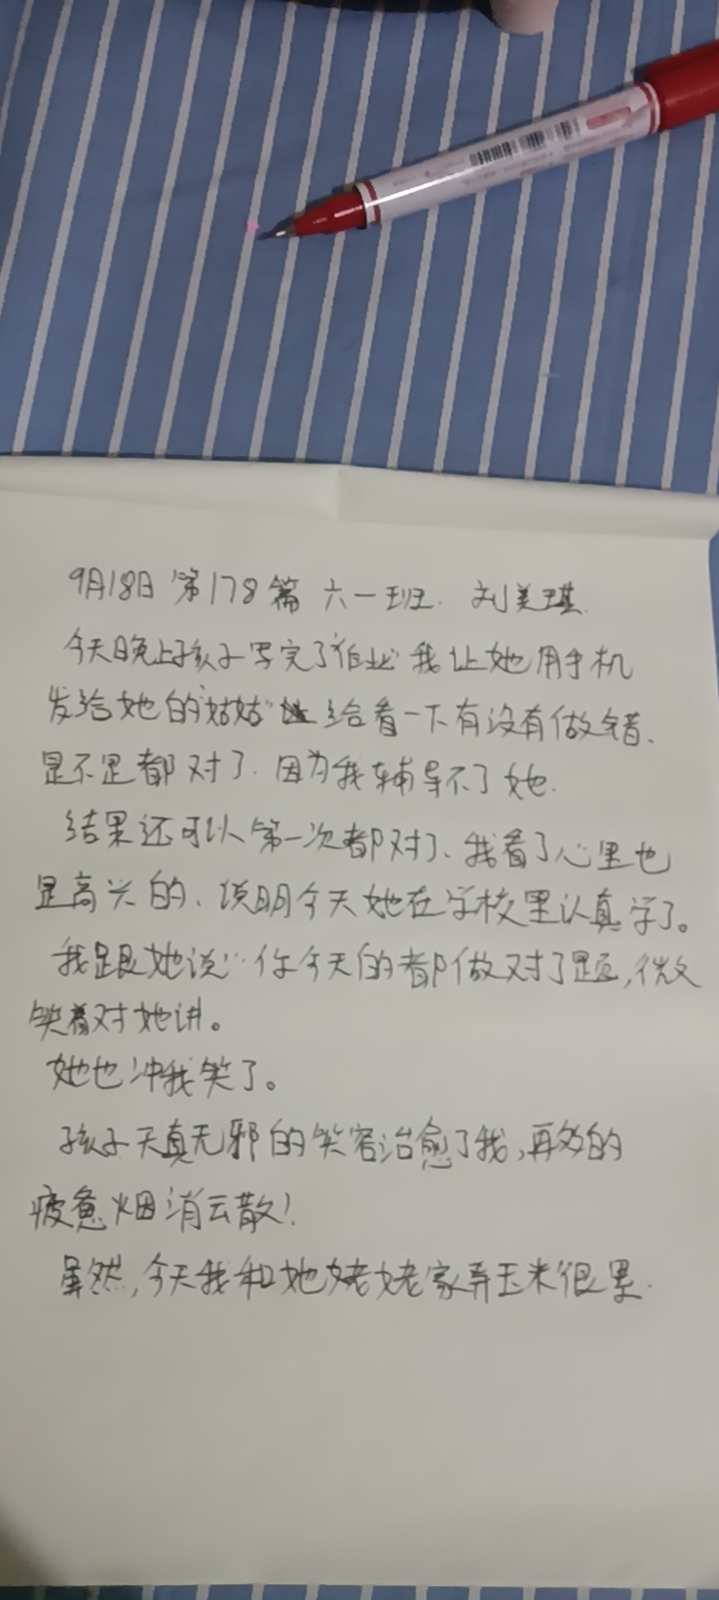 9月18日 第178篇 六一班. 刘美琪.
今天晚上孩子写完了作业 我让她用手机
发给她的“姑姑” 给看一下有没有做错、
是不是都对了. 因为我辅导不了她.
结果还可以 第一次都对了、我看了心里也
是高兴的、说明今天她在学校里认真学了。
我跟她说:“你今天的都做对了题,微
笑着对她讲。
她也冲我笑了。
孩子天真无邪的笑容治愈了我,再多的
疲惫烟消云散!
虽然,今天我和她姥姥家弄玉米很累.